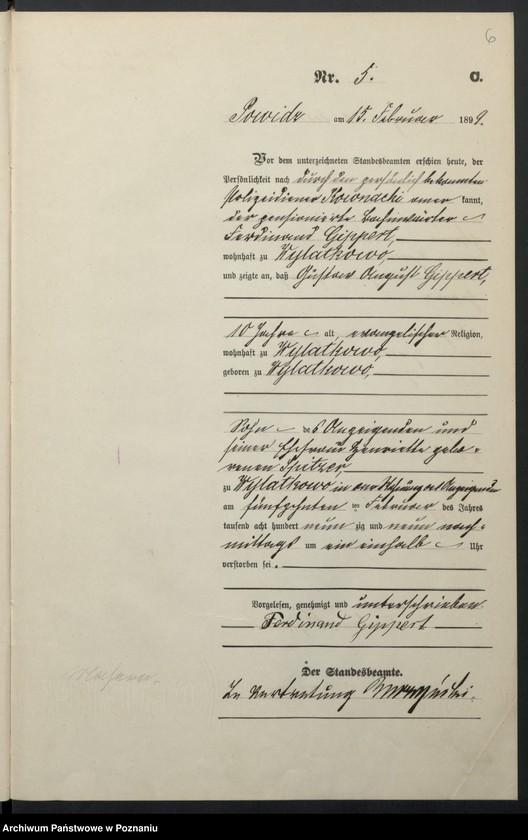 6
Nr. 5. C.
Powidz am 15. Februar 1899.
Vor dem unterzeichneten Standesbeamten erschien heute, der
Persönlichkeit nach durch den persönlich bekannten
Polizeidiener Kownacki aner kannt,
der pensionierte Bahnwärter
Ferdinand Gippert,
wohnhaft zu Wylatkowo
und zeigte an, daß Gustav August Gippert,
10 Jahre alt, evangelischer Religion,
wohnhaft zu Wylatkowo,
geboren zu Wylatkowo,
Sohn des Anzeigenden und
seiner Ehefrau Henriette gebo-
renen Spitzer,
zu Wylatkowo in der Wohnung des Anzeigenden
am fünfzehnten ten Februar des Jahres
tausend acht hundert neun zig und neun nach-
mittags um ein einhalb Uhr
verstorben sei.
Vorgelesen, genehmigt und unterschrieben
Ferdinand Gippert
Der Standesbeamte.
In Vertretung
Archiwum Państwowe w Poznaniu